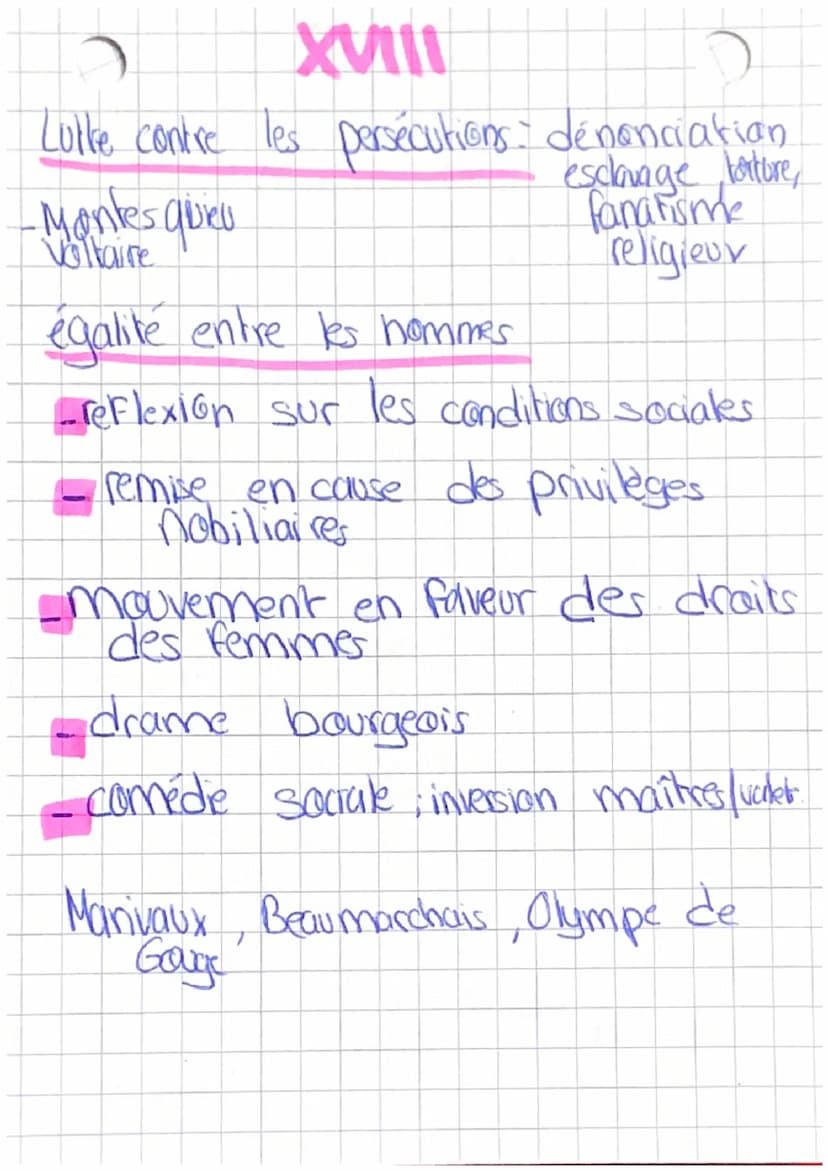 XVIII
Lutte contre les persécutions : dénonciation
esclavage, torture,
fanatisme
religieux
- Montesquieu
Voltaire
égalité entre les hommes
- reflexion sur les conditions sociales
- remise en cause des privilèges
nobiliaires
- mouvement en faveur des droits
des femmes
- drame bourgeois
- comédie sociale ; inversion maîtres/valet
Marivaux, Beaumarchais, Olympe de
Gouge